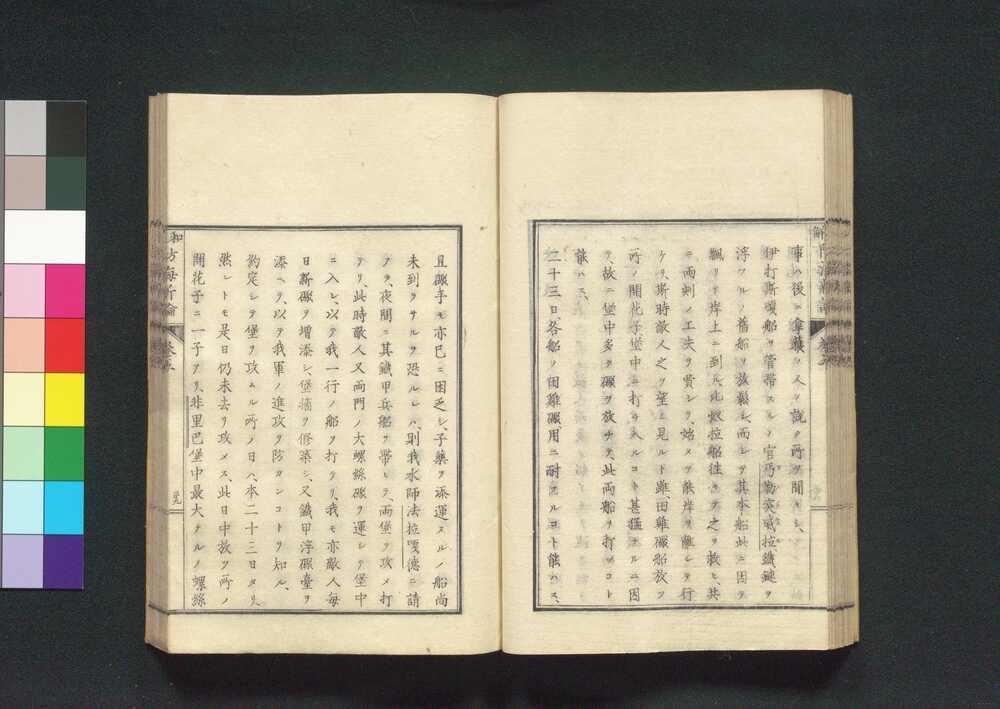 事ハ後ニ拿獲ノ人ノ説ク所ヲ聞キシ、
伊打斯頓船ヲ管帯スルノ官馬勒突威拉鐵鏈ヲ
浮ツルノ舊船ヲ放鬆シ、而シテ其本船此ニ因テ
飄リテ岸上ニ到ル、北燉拉船往キテ之ヲ救ヒ、共
ニ兩刻ノ工夫ヲ費シテ、始メテ敵岸ヲ離レテ行
ケリ、斯時敵人之ヲ望ミ見ルト雖、田雞礟船放ツ
所ノ開花子堡中ニ打チ入ルコト甚猛ナルニ因
テ、故ニ堡中多ク礟ヲ放チテ、此兩船ヲ打ツコト
能ハス、
二十三日、各船ノ田雞礟用ニ耐フルコト能ハス、
且礟手モ亦已ニ困乏シ、子藥ヲ添運スルノ船尚
未到ラサルヲ恐ルレハ、則我水師法拉嘎德ニ請
フテ、夜間ニ其鐵甲兵船ヲ帶シテ、兩堡ヲ攻メ打
テリ、此時敵人又兩門ノ大螺絲礟ヲ運シテ堡中
ニ入レ、以テ我一行ノ船ヲ打タリ、我モ亦敵人毎
日新礟ヲ増添シ、堡墻ヲ修築シ、又鐵甲浮礟臺ヲ
添ヘテ、以テ我軍ノ進攻ヲ防カンコトヲ知ル、
約定シテ堡ヲ攻ムル所ノ日ハ、本二十三日タリ、
然レトモ是日仍未去リ攻メス、此日中放ツ所ノ
開花子ニ一子アリ、非里巴堡中最大ナルノ螺絲
防海新論